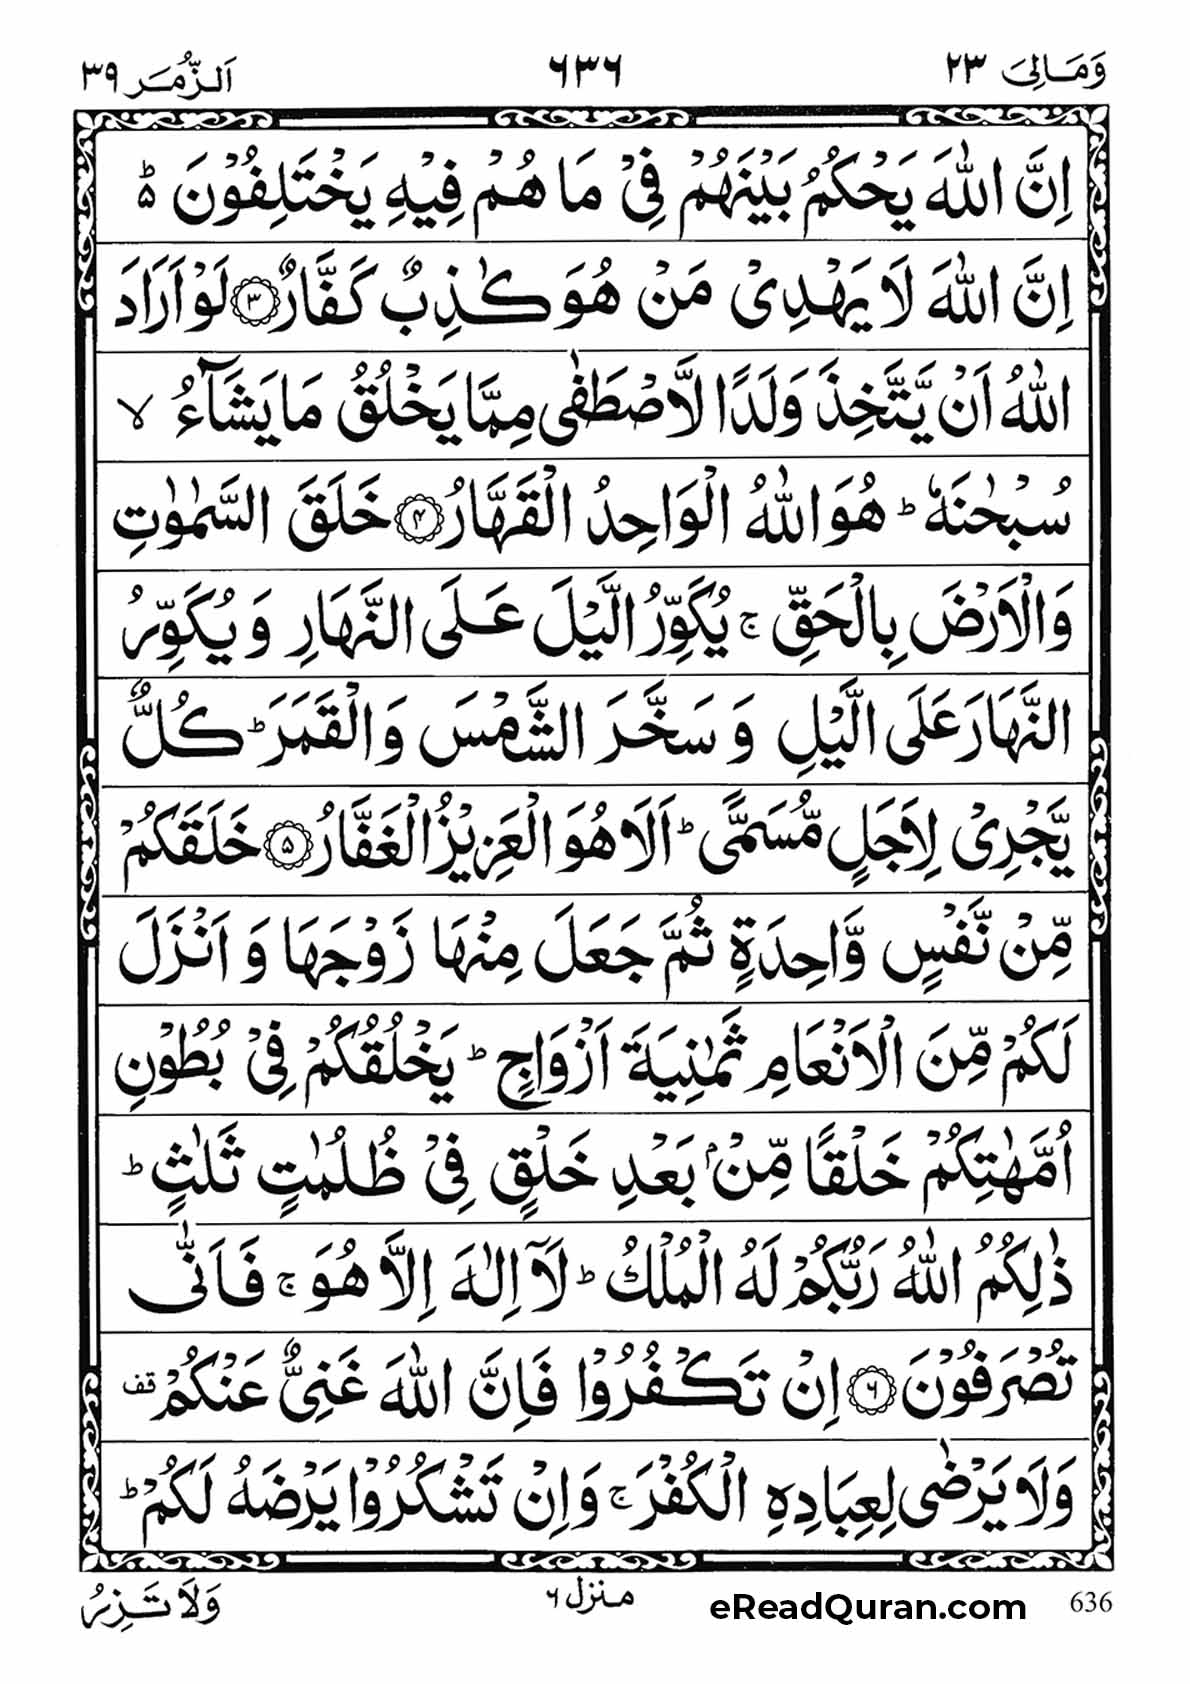 وَمَالِیَ ٢٣ ٦٣٦ اَلزُّمَر ٣٩
اِنَّ اللّٰهَ یَحْكُمُ بَیْنَهُمْ فِیْ مَا هُمْ فِیْهِ یَخْتَلِفُوْنَ ؕ۬
اِنَّ اللّٰهَ لَا یَهْدِیْ مَنْ هُوَ كٰذِبٌ كَفَّارٌ ﴿۳﴾ لَوْ اَرَادَ
اللّٰهُ اَنْ یَّتَّخِذَ وَلَدًا لَّاصْطَفٰی مِمَّا یَخْلُقُ مَا یَشَآءُ ۙ
سُبْحٰنَهٗ ؕ هُوَ اللّٰهُ الْوَاحِدُ الْقَهَّارُ ﴿۴﴾ خَلَقَ السَّمٰوٰتِ
وَالْاَرْضَ بِالْحَقِّ ۚ یُكَوِّرُ الَّیْلَ عَلَی النَّهَارِ وَ یُكَوِّرُ
النَّهَارَ عَلَی الَّیْلِ وَ سَخَّرَ الشَّمْسَ وَالْقَمَرَ ؕ كُلٌّ
یَّجْرِیْ لِاَجَلٍ مُّسَمًّی ؕ اَلَا هُوَ الْعَزِیْزُ الْغَفَّارُ ﴿۵﴾ خَلَقَكُمْ
مِّنْ نَّفْسٍ وَّاحِدَةٍ ثُمَّ جَعَلَ مِنْهَا زَوْجَهَا وَ اَنْزَلَ
لَكُمْ مِّنَ الْاَنْعَامِ ثَمٰنِیَةَ اَزْوَاجٍ ؕ یَخْلُقُكُمْ فِیْ بُطُوْنِ
اُمَّهٰتِكُمْ خَلْقًا مِّنْۢ بَعْدِ خَلْقٍ فِیْ ظُلُمٰتٍ ثَلٰثٍ ؕ
ذٰلِكُمُ اللّٰهُ رَبُّكُمْ لَهُ الْمُلْكُ ؕ لَاۤ اِلٰهَ اِلَّا هُوَ ۚ فَاَنّٰی
تُصْرَفُوْنَ ﴿۶﴾ اِنْ تَكْفُرُوْا فَاِنَّ اللّٰهَ غَنِیٌّ عَنْكُمْ قف
وَلَا یَرْضٰی لِعِبَادِهِ الْكُفْرَ ۚ وَاِنْ تَشْكُرُوْا یَرْضَهُ لَكُمْ ؕ
وَلَا تَزِرُ منزل ٦ eReadQuran.com 636